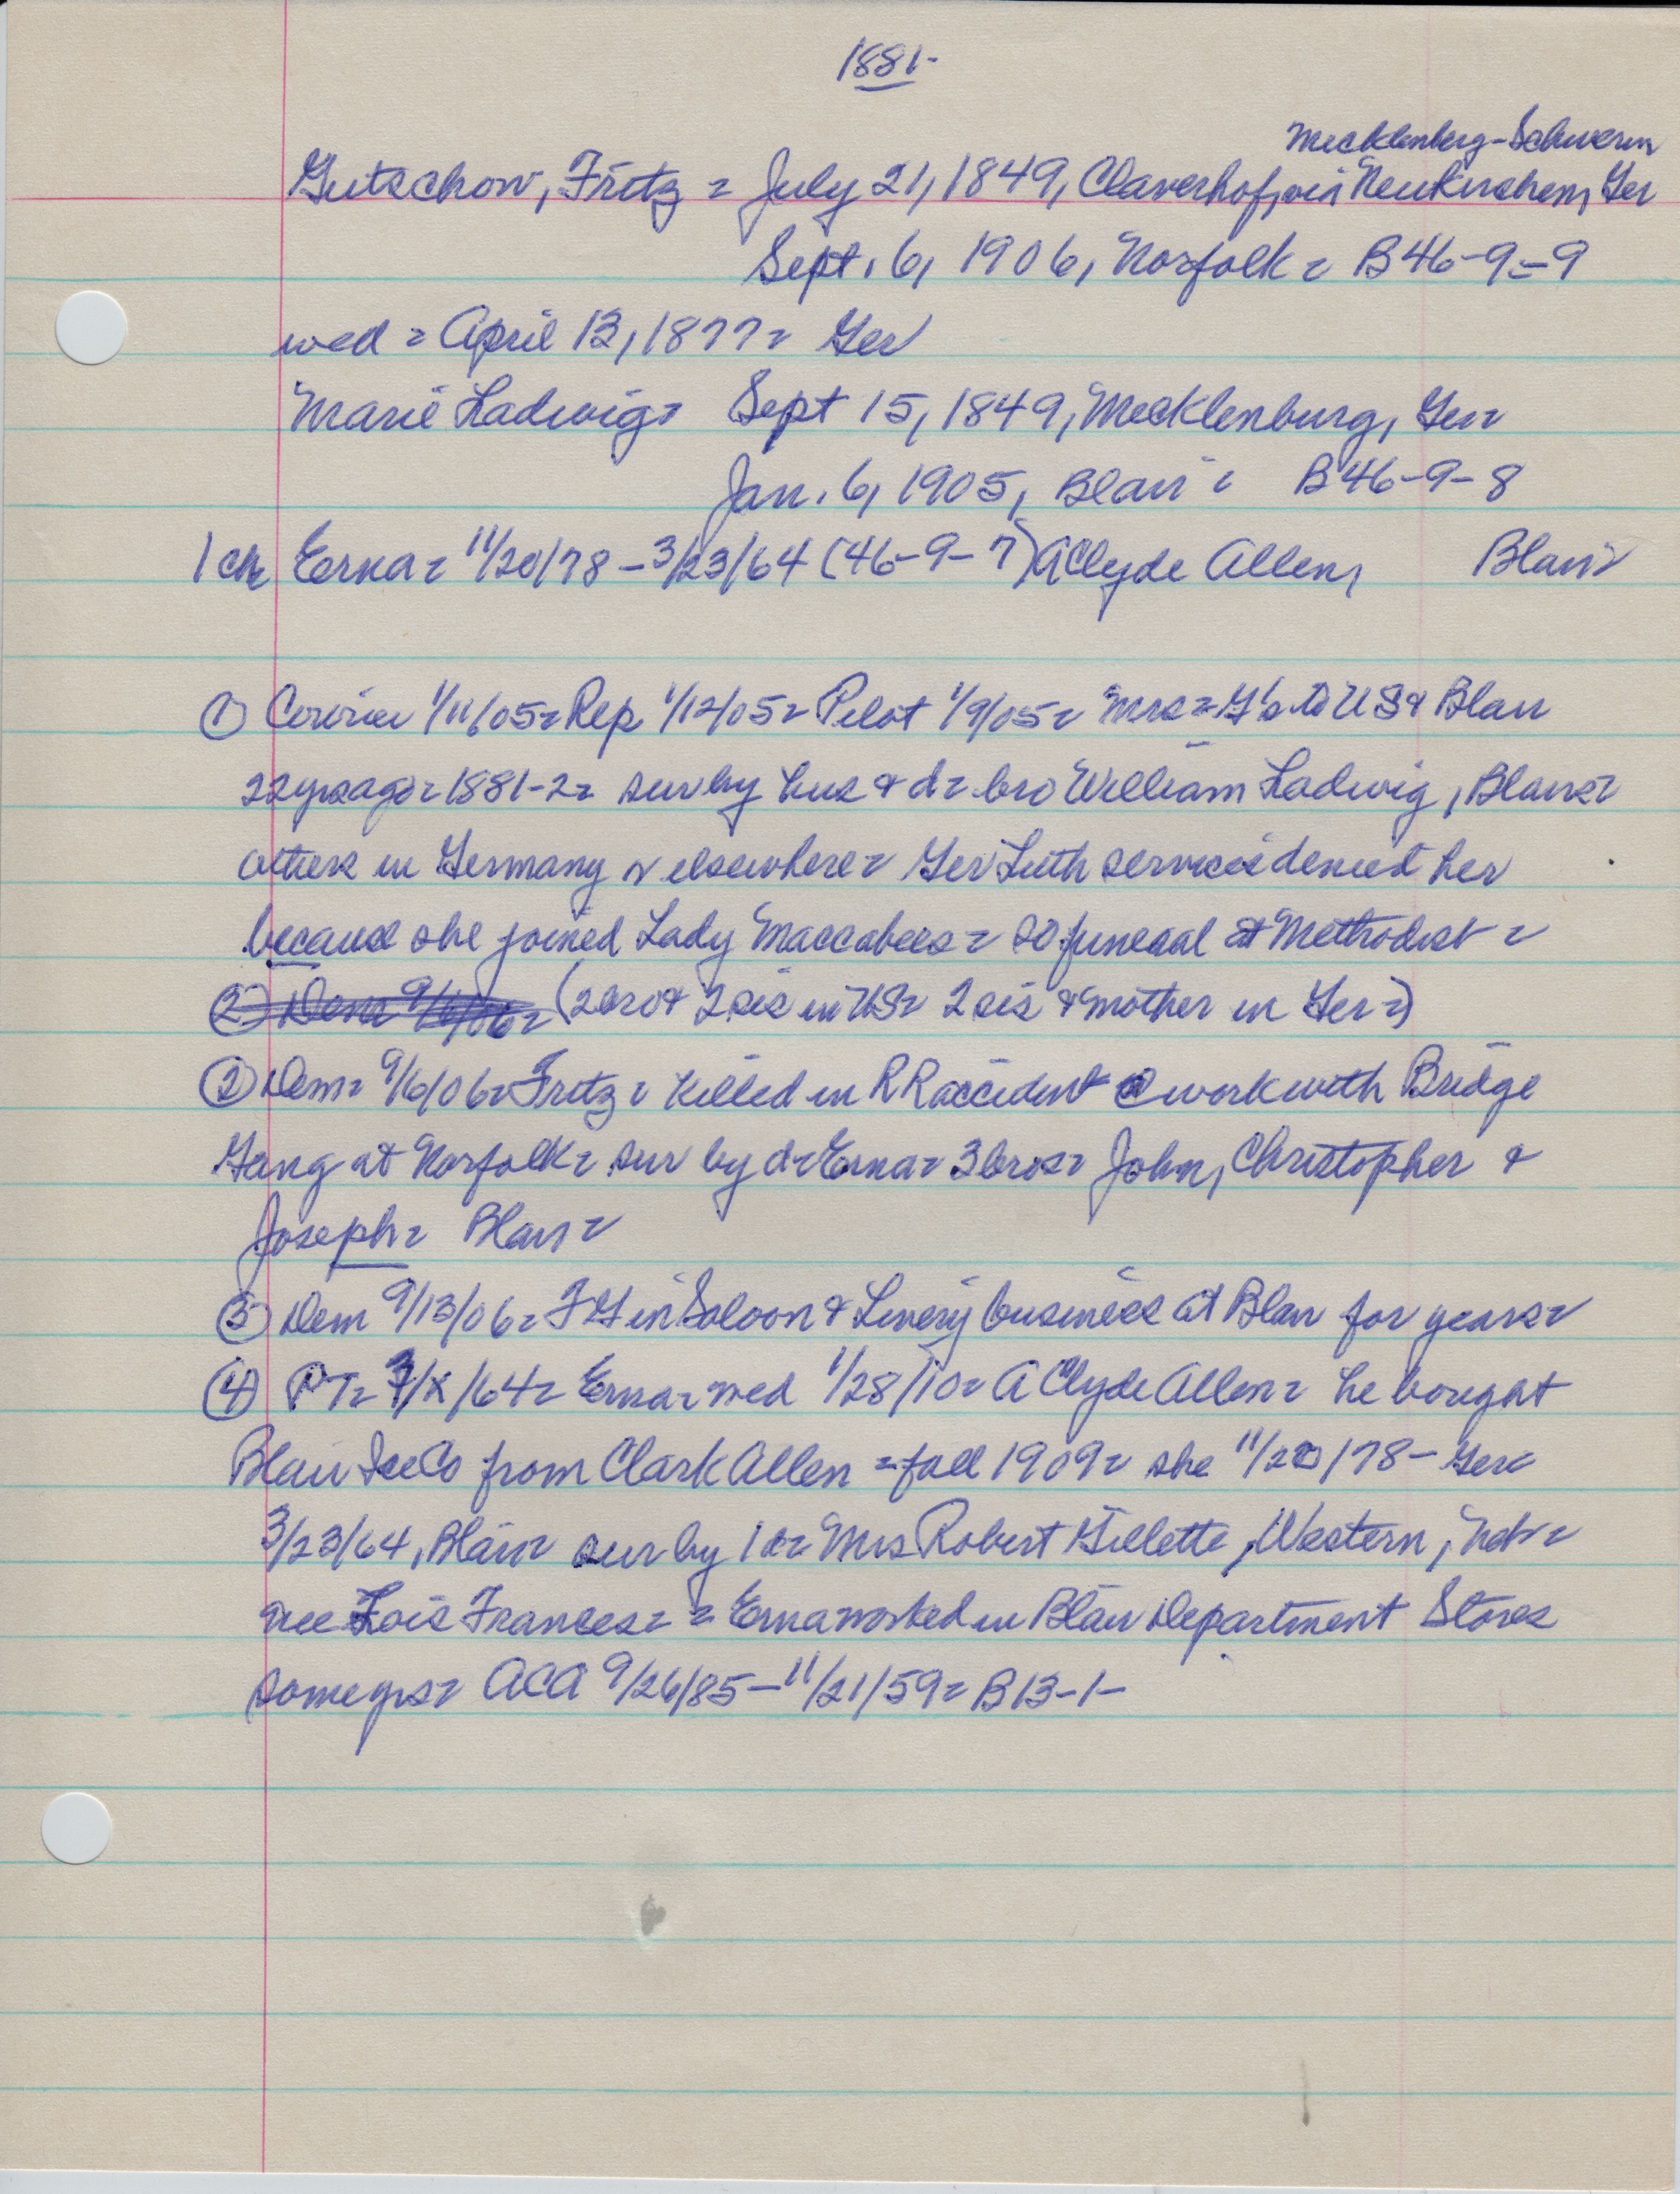 1881-
Mecklenberg-Schwerin
Gutschow, Fritz = July 21, 1849, Claverhof, via Neukirchen, Ger
Sept. 6, 1906, Norfolk = B46-9-9
wed = April 13, 1877 = Ger
Marie Ladwig = Sept 15, 1849, Mecklenburg, Ger =
Jan. 6, 1905, Blair = B46-9-8
1 ch Erna = 11/20/78 - 3/23/64 (46-9-7) A Clyde Allen, Blair =
① Courier 1/11/05 = Rep 1/12/05 = Pilot 1/9/05 = Mrs = G's to US & Blair
22 yrs ago = 1881-2 = sur by hus & d = bro William Ladwig, Blair =
others in Germany or elsewhere = Ger Luth services denied her
because she joined Lady Maccabees = so funeral at Methodist =
② Dem 9/6/06 = (2 bro & 2 sis in US = 2 sis & mother in Ger =)
② Dem = 9/6/06 = Fritz = Killed in RR accident @ work with Bridge
Gang at Norfolk = sur by d = Erna = 3 bros = John, Christopher &
Joseph = Blair =
③ Dem 9/13/06 = FG in Saloon & Livery business at Blair for years =
④ PT = 3/X/64 = Erna = wed 1/28/10 = A Clyde Allen = he bought
Blair Ice Co from Clark Allen = fall 1909 = she 11/20/78 - Ger =
3/23/64, Blair = sur by 1 d = Mrs Robert Gillette, Western, Neb =
nee Lois Frances = = Erna worked in Blair Department Stores
some yrs = ACA 9/26/85 - 11/21/59 = B13-1-